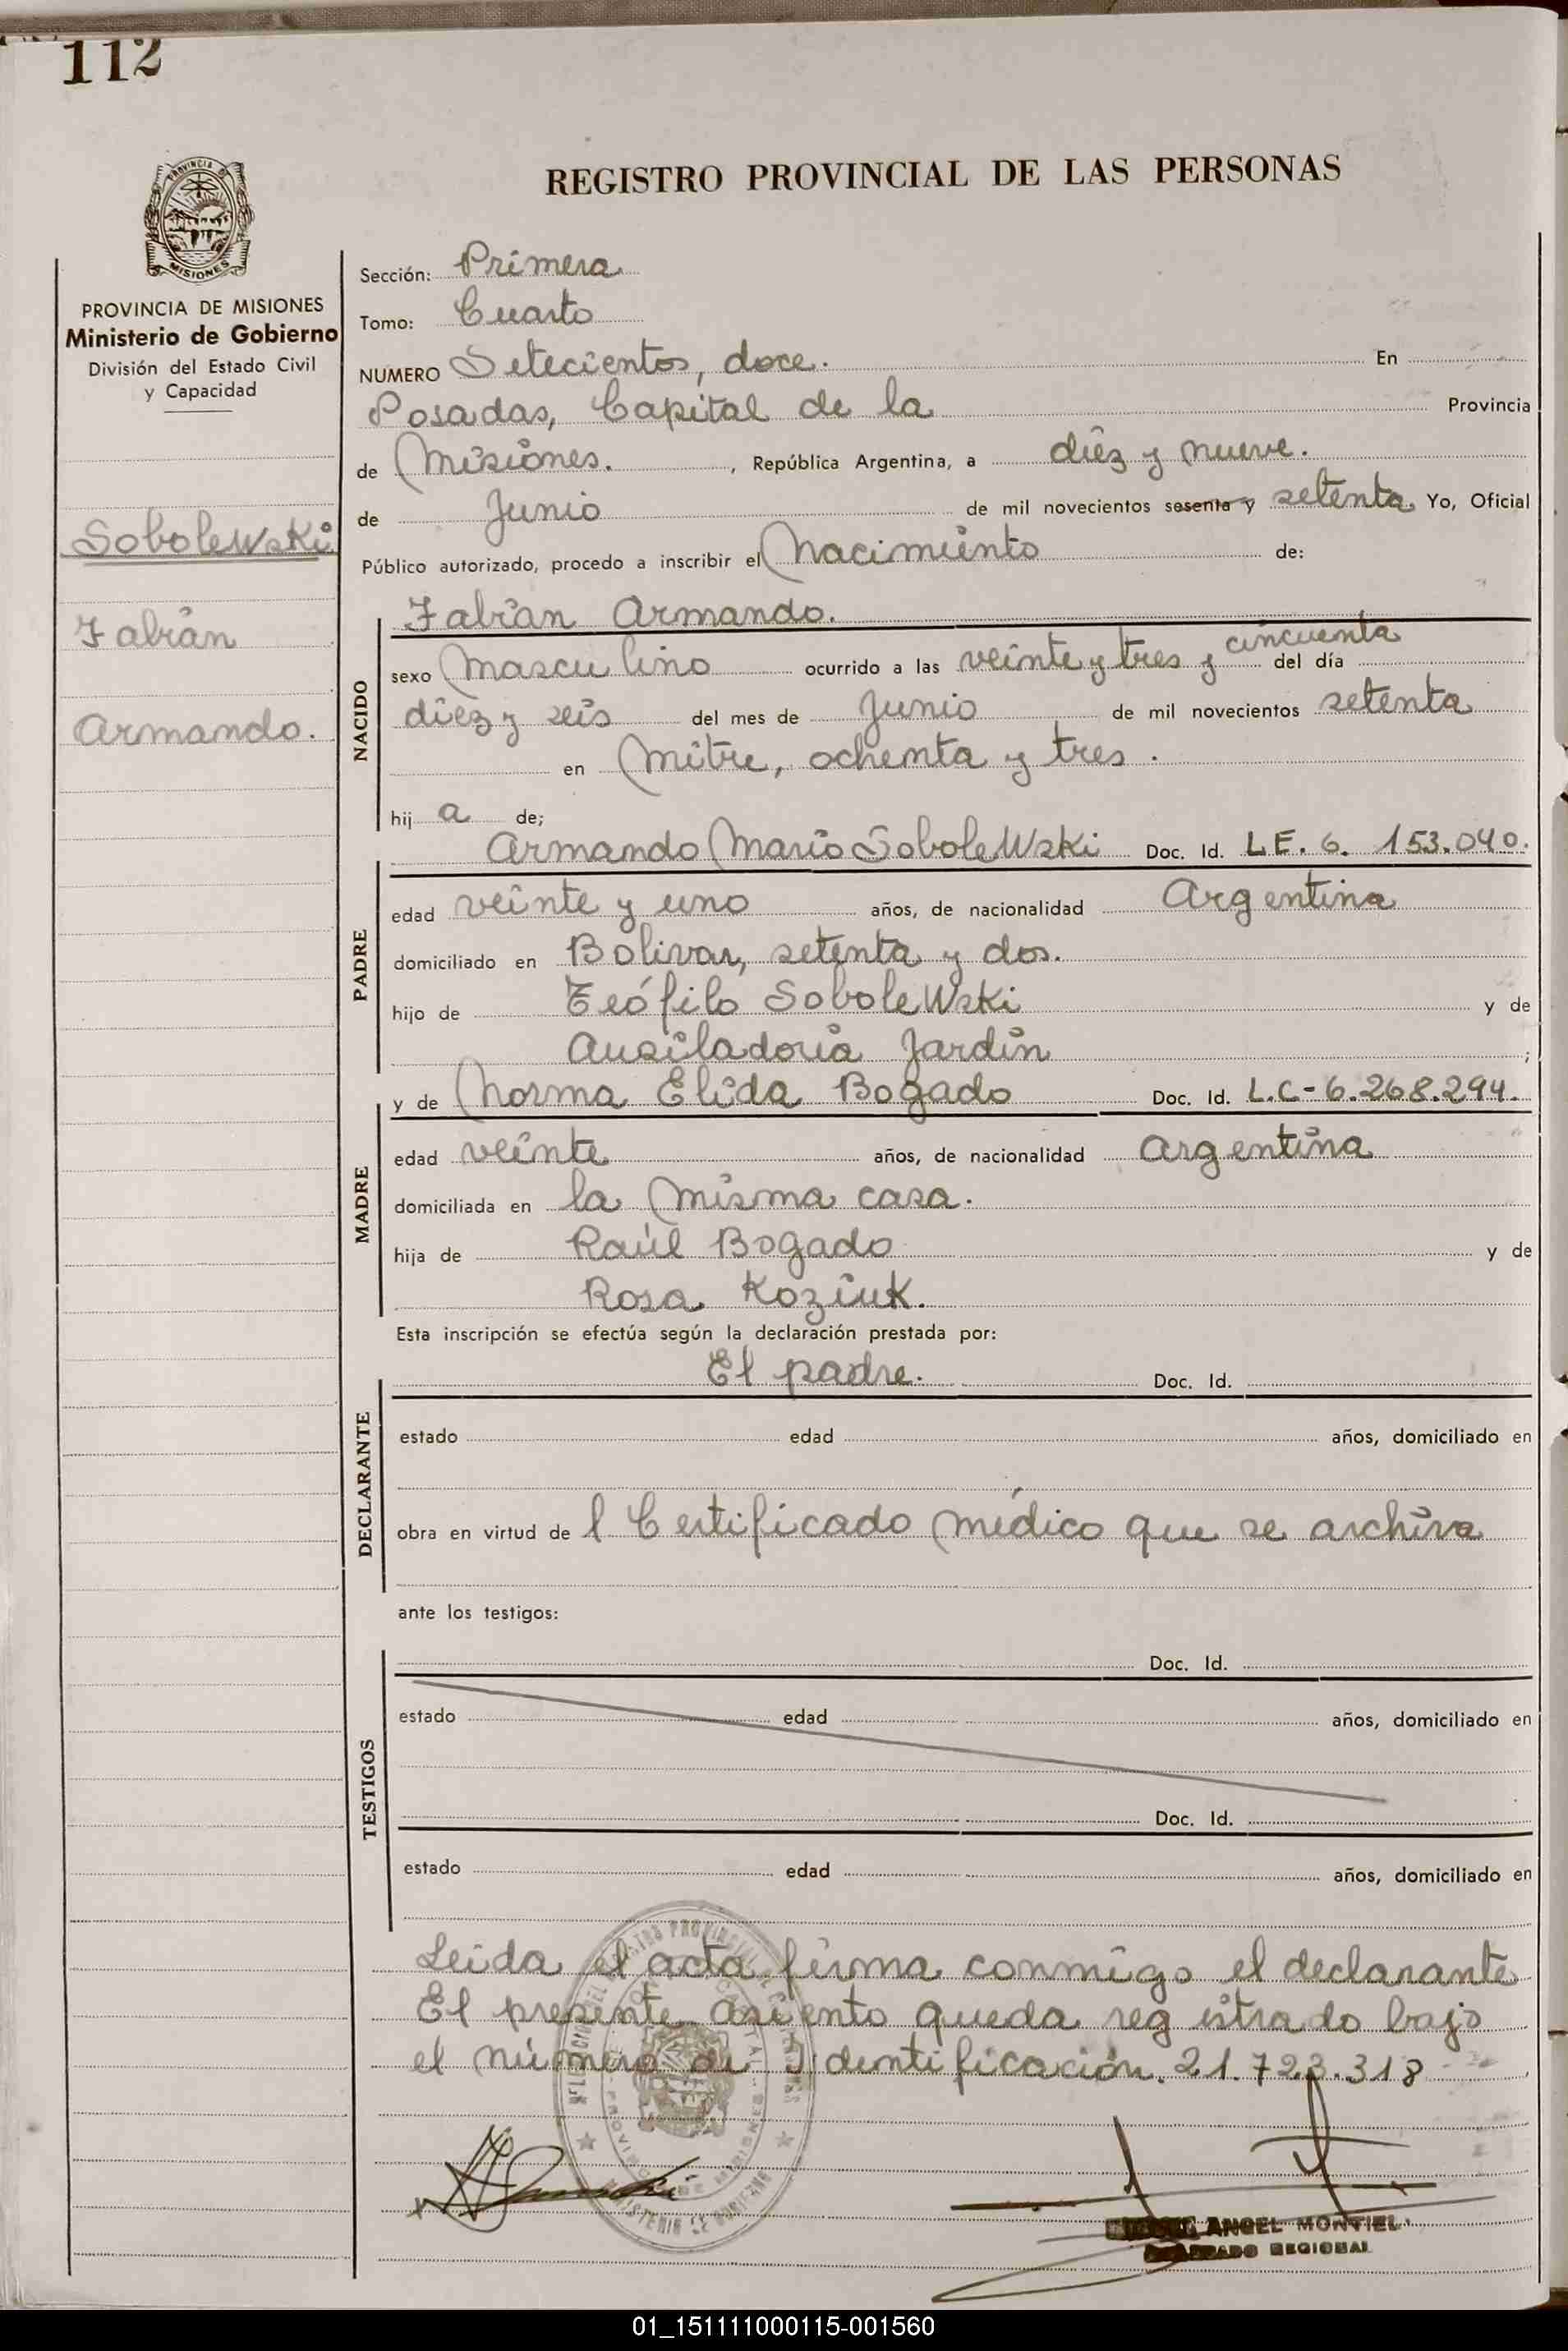 112
REGISTRO PROVINCIAL DE LAS PERSONAS
PROVINCIA
MISIONES
PROVINCIA DE MISIONES
Ministerio de Gobierno
División del Estado Civil
y Capacidad
Sobolewski
Fabián
Armando.
Sección: Primera
Tomo: Cuarto
NUMERO Setecientos, doce. En
Posadas, Capital de la Provincia
de Misiones. , República Argentina, a diez y nueve.
de Junio de mil novecientos sesenta y setenta Yo, Oficial
Público autorizado, procedo a inscribir el Nacimiento de:
Fabián Armando.
NACIDO
sexo Masculino ocurrido a las veinte y tres y cincuenta del día
diez y seis del mes de Junio de mil novecientos setenta
en Mitre, ochenta y tres.
hij a de;
Armando Mario Sobolewski Doc. Id. L.E. 6. 153.040.
PADRE
edad veinte y uno años, de nacionalidad Argentina
domiciliado en Bolivar, setenta y dos.
hijo de Teófilo Sobolewski y de
Ausiladoria Jardín ;
y de Norma Elida Bogado Doc. Id. L.C-6.268.294.
MADRE
edad veinte años, de nacionalidad Argentina
domiciliada en la misma casa.
hija de Raúl Bogado y de
Rosa Koziuk.
Esta inscripción se efectúa según la declaración prestada por:
El padre. Doc. Id.
DECLARANTE
estado edad años, domiciliado en
obra en virtud de l Certificado médico que se archiva
ante los testigos:
Doc. Id.
TESTIGOS
estado edad años, domiciliado en
Doc. Id.
estado edad años, domiciliado en
Leída el acta firma conmigo el declarante
El presente asiento queda registrado bajo
el número de Identificación. 21.723.318
ANGEL MONTIEL
REGIONAL
01_151111000115-001560